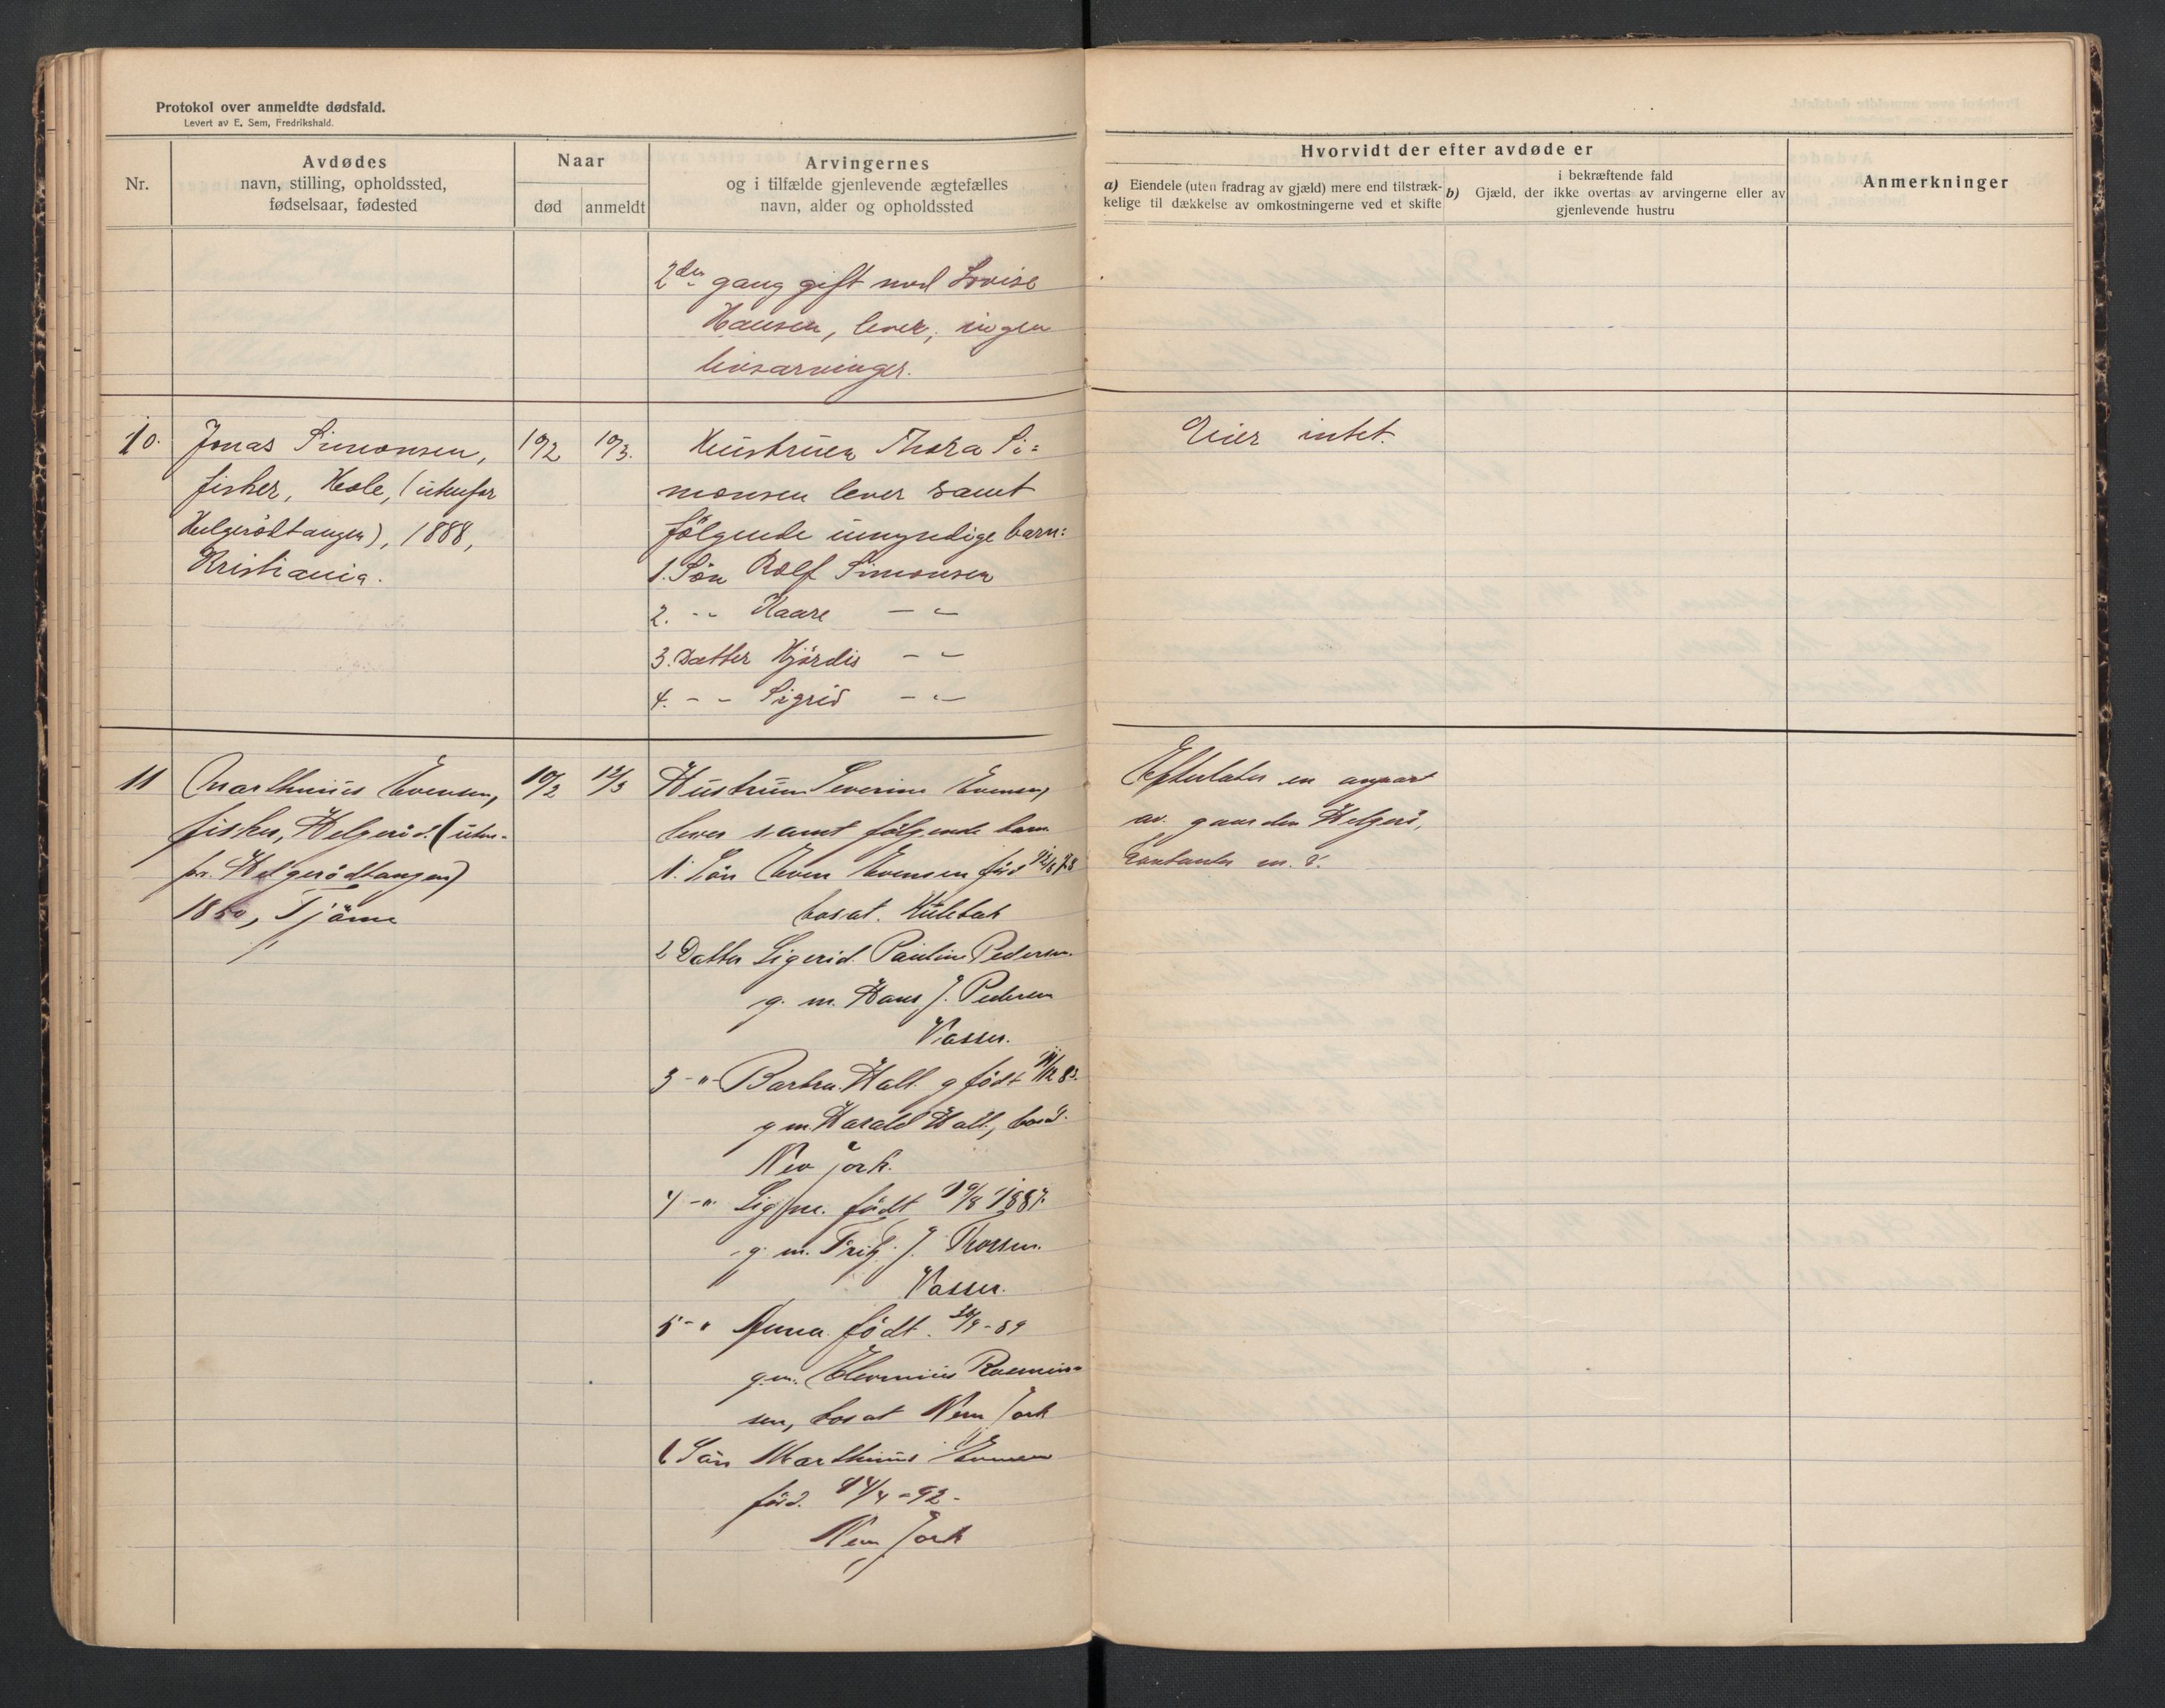 Protokol over anmeldte dødsfald.
Levert av E. Sem, Fredrikshald.
Nr.
Avdødes
navn, stilling, opholdssted,
fødselsaar, fødested
Naar
død
anmeldt
Arvingernes
og i tilfælde gjenlevende ægtefælles
navn, alder og opholdssted
Hvorvidt der efter avdøde er
a) Eiendele (uten fradrag av gjæld) mere end tilstræk-
kelige til dækkelse av omkostningerne ved et skifte
i bekræftende fald
b) Gjæld, der ikke overtas av arvingerne eller av
gjenlevende hustru
Anmerkninger
2den gang gift med Lovise
Hansen, lever, ingen
livsarvinger.
10.
Jonas Simonsen,
fisker, Hole, (utenfor
Helgerödtangen), 1888,
Kristiania.
10/2
10/3.
Hustruen Thora Si=
monsen lever samt
følgende umyndige barn:
1. Søn Rolf Simonsen
2. -- Kaare — "—
3. Datter Hjördis — "—
4. - - Sigrid — "—
Eier intet.
11
Marthinius Evensen,
fisker, Helgeröd (uten-
for Helgerödtangen)
1850, Tjöme
10/2
12/3
Hustrum Severine Evensen,
lever samt følgende barn
1. Søn Even Evensen föd
bosat.
2 Datter Sigerid Pauline Pedersen
g. m. Hans J. Pedersen
Vasser.
3 -"- Hall g født 11/12 83.
g m. Harald Hall, bosat
New York.
4 -"- Signe. født 10/8 1887.
g. m. J. Thorsen.
Vasser.
5 -" Anna født. /9-89
g.m. Rasmus-
sen, bosat New York
6 Søn Marthinius Evensen
föd. 14/4-92-
New York
Efterlater en anpart
av gaarden Helgerö,
kontanter m. v.